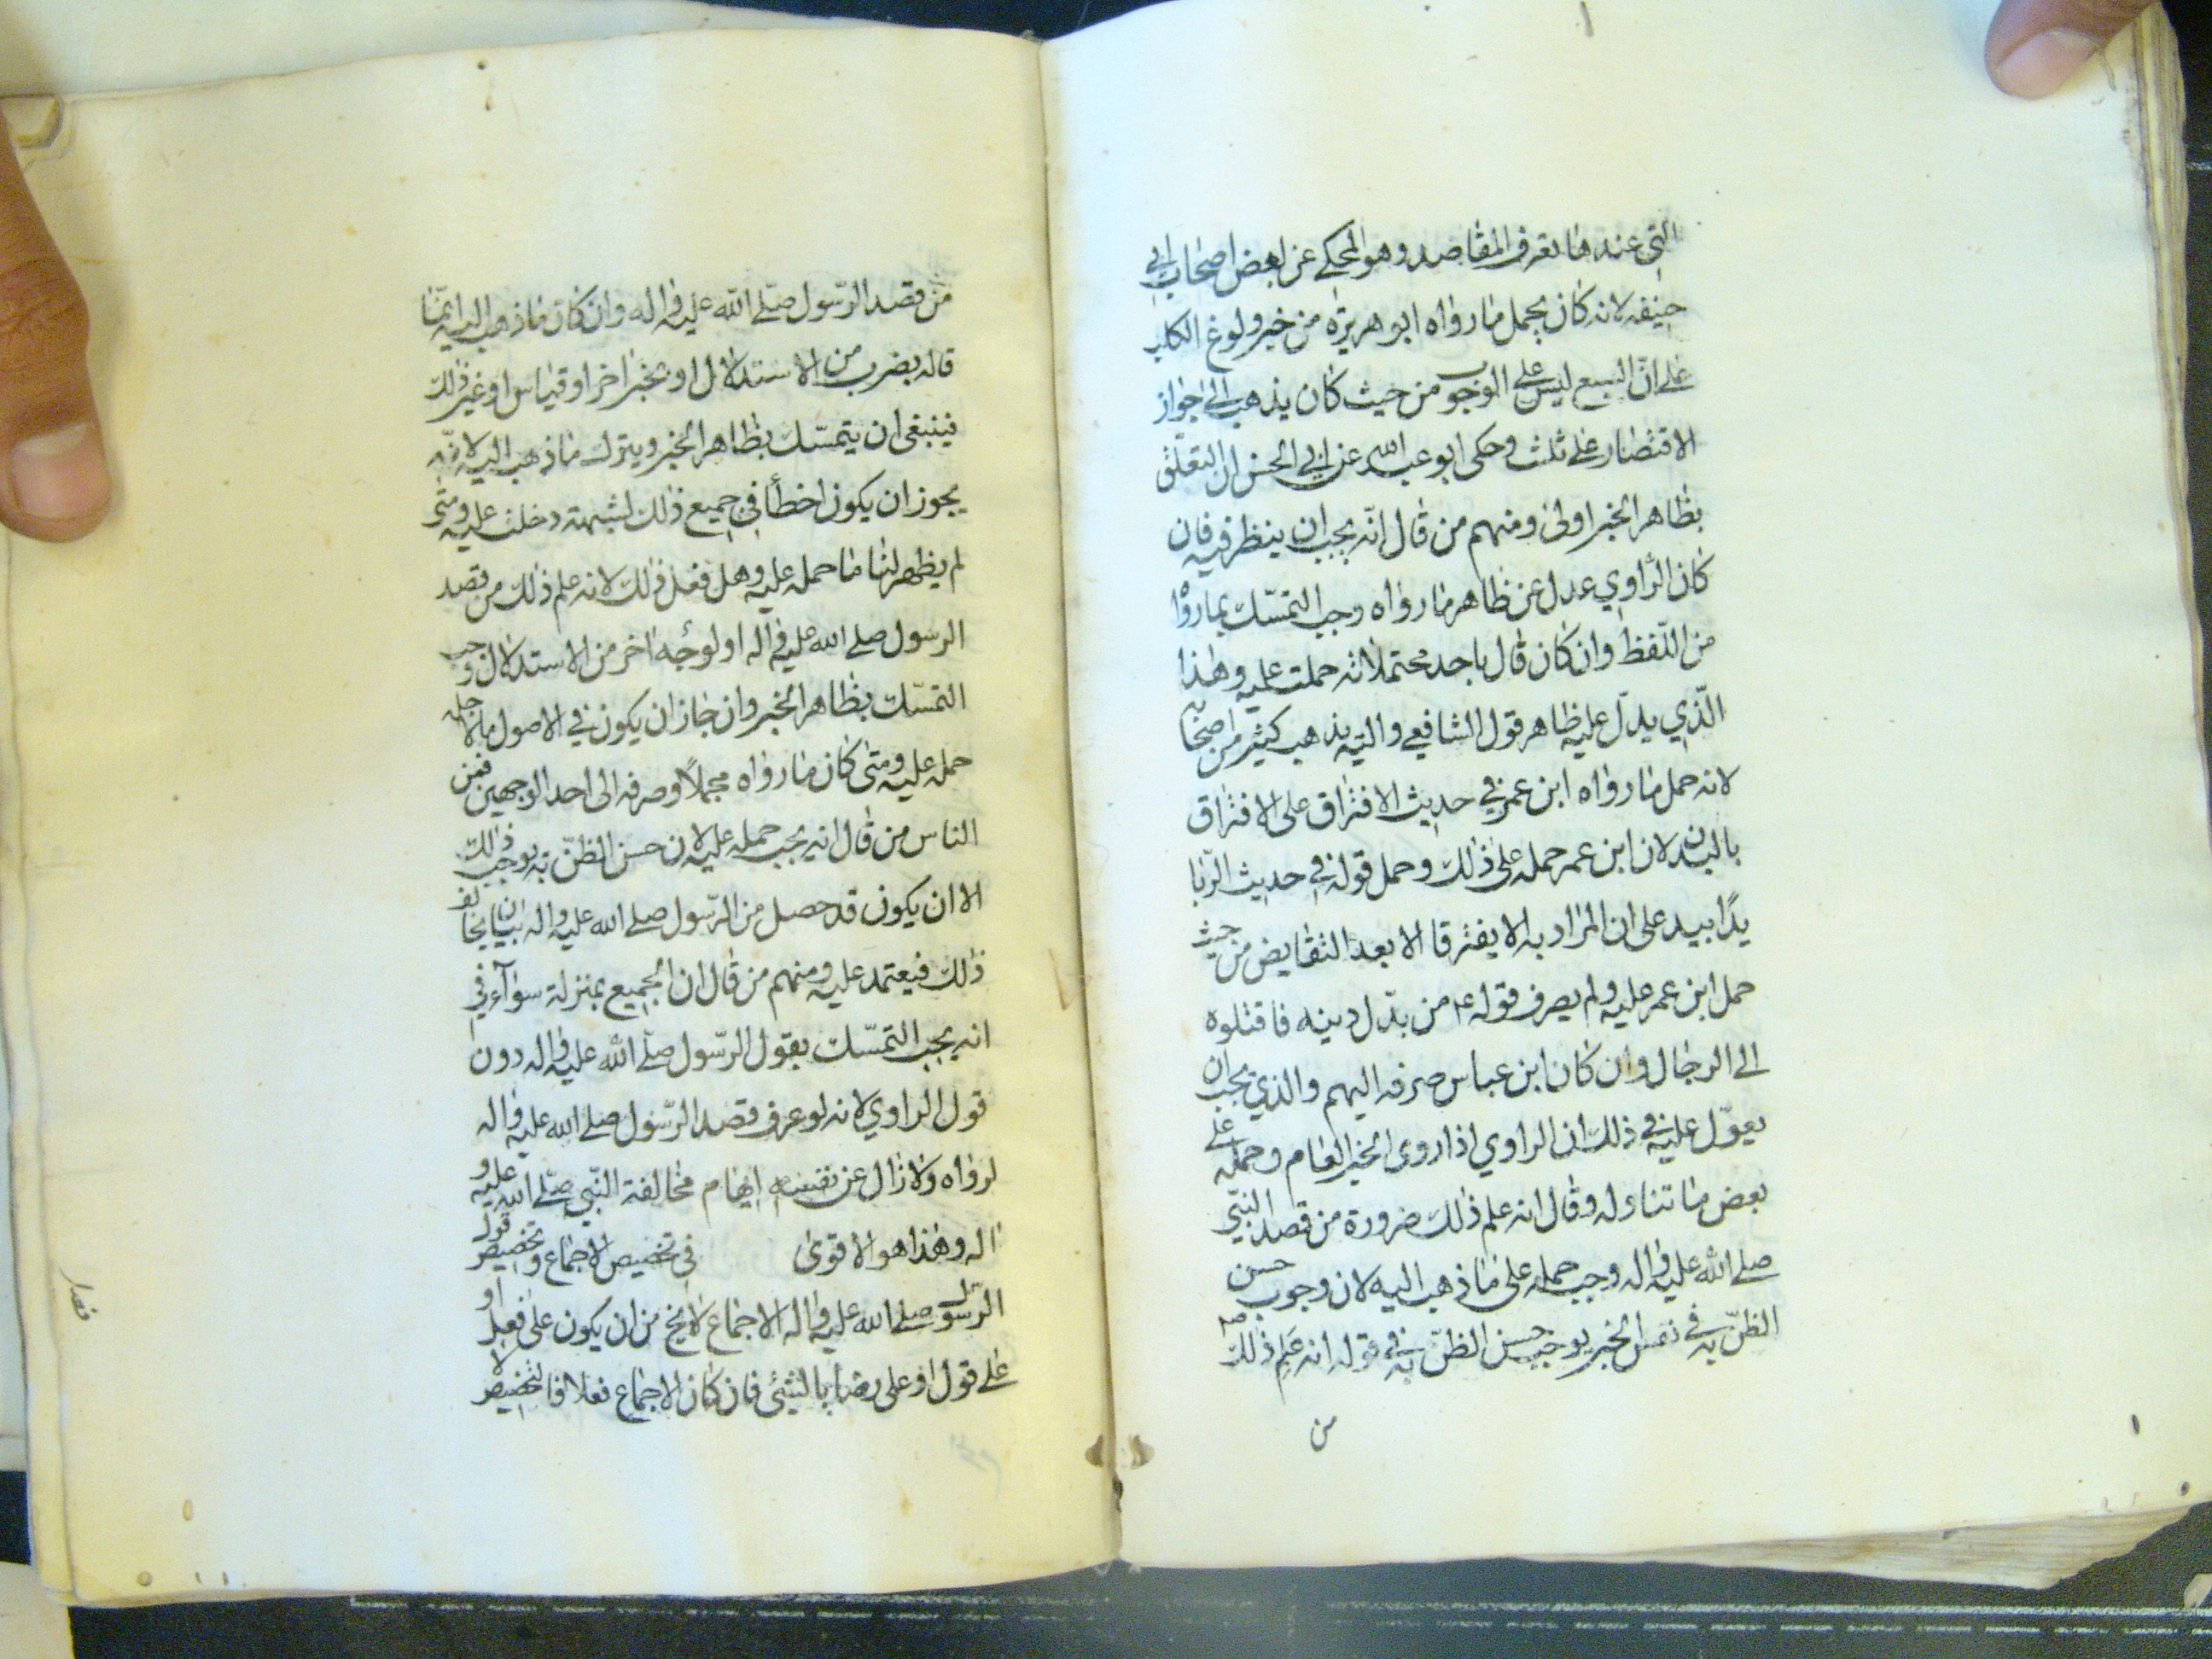 التي عندها يعرف المقاصد وهو المحكي عن بعض اصحاب ابي
حنيفه لانه كان يحمل ما رواه ابو هريرة من خبر ولوغ الكلب
على ان السبع ليس على الوجوب من حيث كان يذهب الى جواز
الاقتصار على ثلث وحكى ابو عبد الله عن ابي الحسن ان التعلّق
بظاهر الخبر اولى ومنهم من قال انّه يجب ان ينظر فيه فان
كان الراوي عدل عن ظاهر ما رواه وجب التمسّك بما رواه
من اللّفظ وان كان قال باحد محتملاته حملت عليه وهذا
الّذي يدلّ عليه ظاهر قول الشافعي واليه يذهب كثير من اصحابه
لانه حمل ما رواه ابن عمر في حديث الافتراق على الافتراق
بالبدن لان ابن عمر حمله على ذلك وحمل قوله في حديث الرّبا
يدًا بيد على ان المراد به الا يفترقا الا بعد التقابض من حيث
حمل ابن عمر عليه ولم يصرف قوله ع من بدّل دينه فاقتلوه
الى الرجال وان كان ابن عباس صرفه اليهم والذي يجب ان
يعوّل عليه في ذلك ان الراوي اذا روى الخبر العام وحمله على
بعض ما تناوله وقال انه علم ذلك ضرورة من قصد النبيّ
صلى الله عليه واله وجب حمله على ما ذهب اليه لان وجوب حسن
الظنّ به في نفس الخبر يوجب حسن الظنّ به في قوله انه علم ذلك
من
من قصد الرّسول صلّى الله عليه واله وان كان ما ذهب اليه انّما
قاله بضرب من الاستدلال او بخبر اخر او قياس او غير ذلك
فينبغى ان يتمسّك بظاهر الخبر ويترك ما ذهب اليه لانّه
يجوز ان يكون اخطأ في جميع ذلك لشبهة دخلت عليه ومتى
لم يظهر لنا ما حمله عليه وهل فعل ذلك لانه علم ذلك من قصد
الرسول صلى الله عليه واله او لوجه اخر من الاستدلال وجب
التمسّك بظاهر الخبر وان جاز ان يكون في الاصول ما لاجله
حمله عليه ومتى كان ما رواه مجملًا وصرفه الى احد الوجهين فمن
الناس من قال انه يجب حمله عليه لان حسن الظنّ به يوجب ذلك
الا ان يكون قد حصل من الرّسول صلى الله عليه واله بيان يخالف
ذلك فيعتمد عليه ومنهم من قال ان الجميع بمنزلة سوآء في
انه يجب التمسّك بقول الرّسول صلّى الله عليه واله دون
قول الراوي لانه لو عرف قصد الرّسول صلى الله عليه واله
لرواه ولازال عن نفسه ايهام مخالفة النّبي صلّى الله عليه و
اله وهذا هو الاقوى في تخصيص الاجماع وتخصيص قول
الرّسول صلى الله عليه واله الاجماع لا يخ من ان يكون على فعل او
على قول او على رضا بالشئ فان كان الاجماع فعلا فالتخصيص لا
فصل